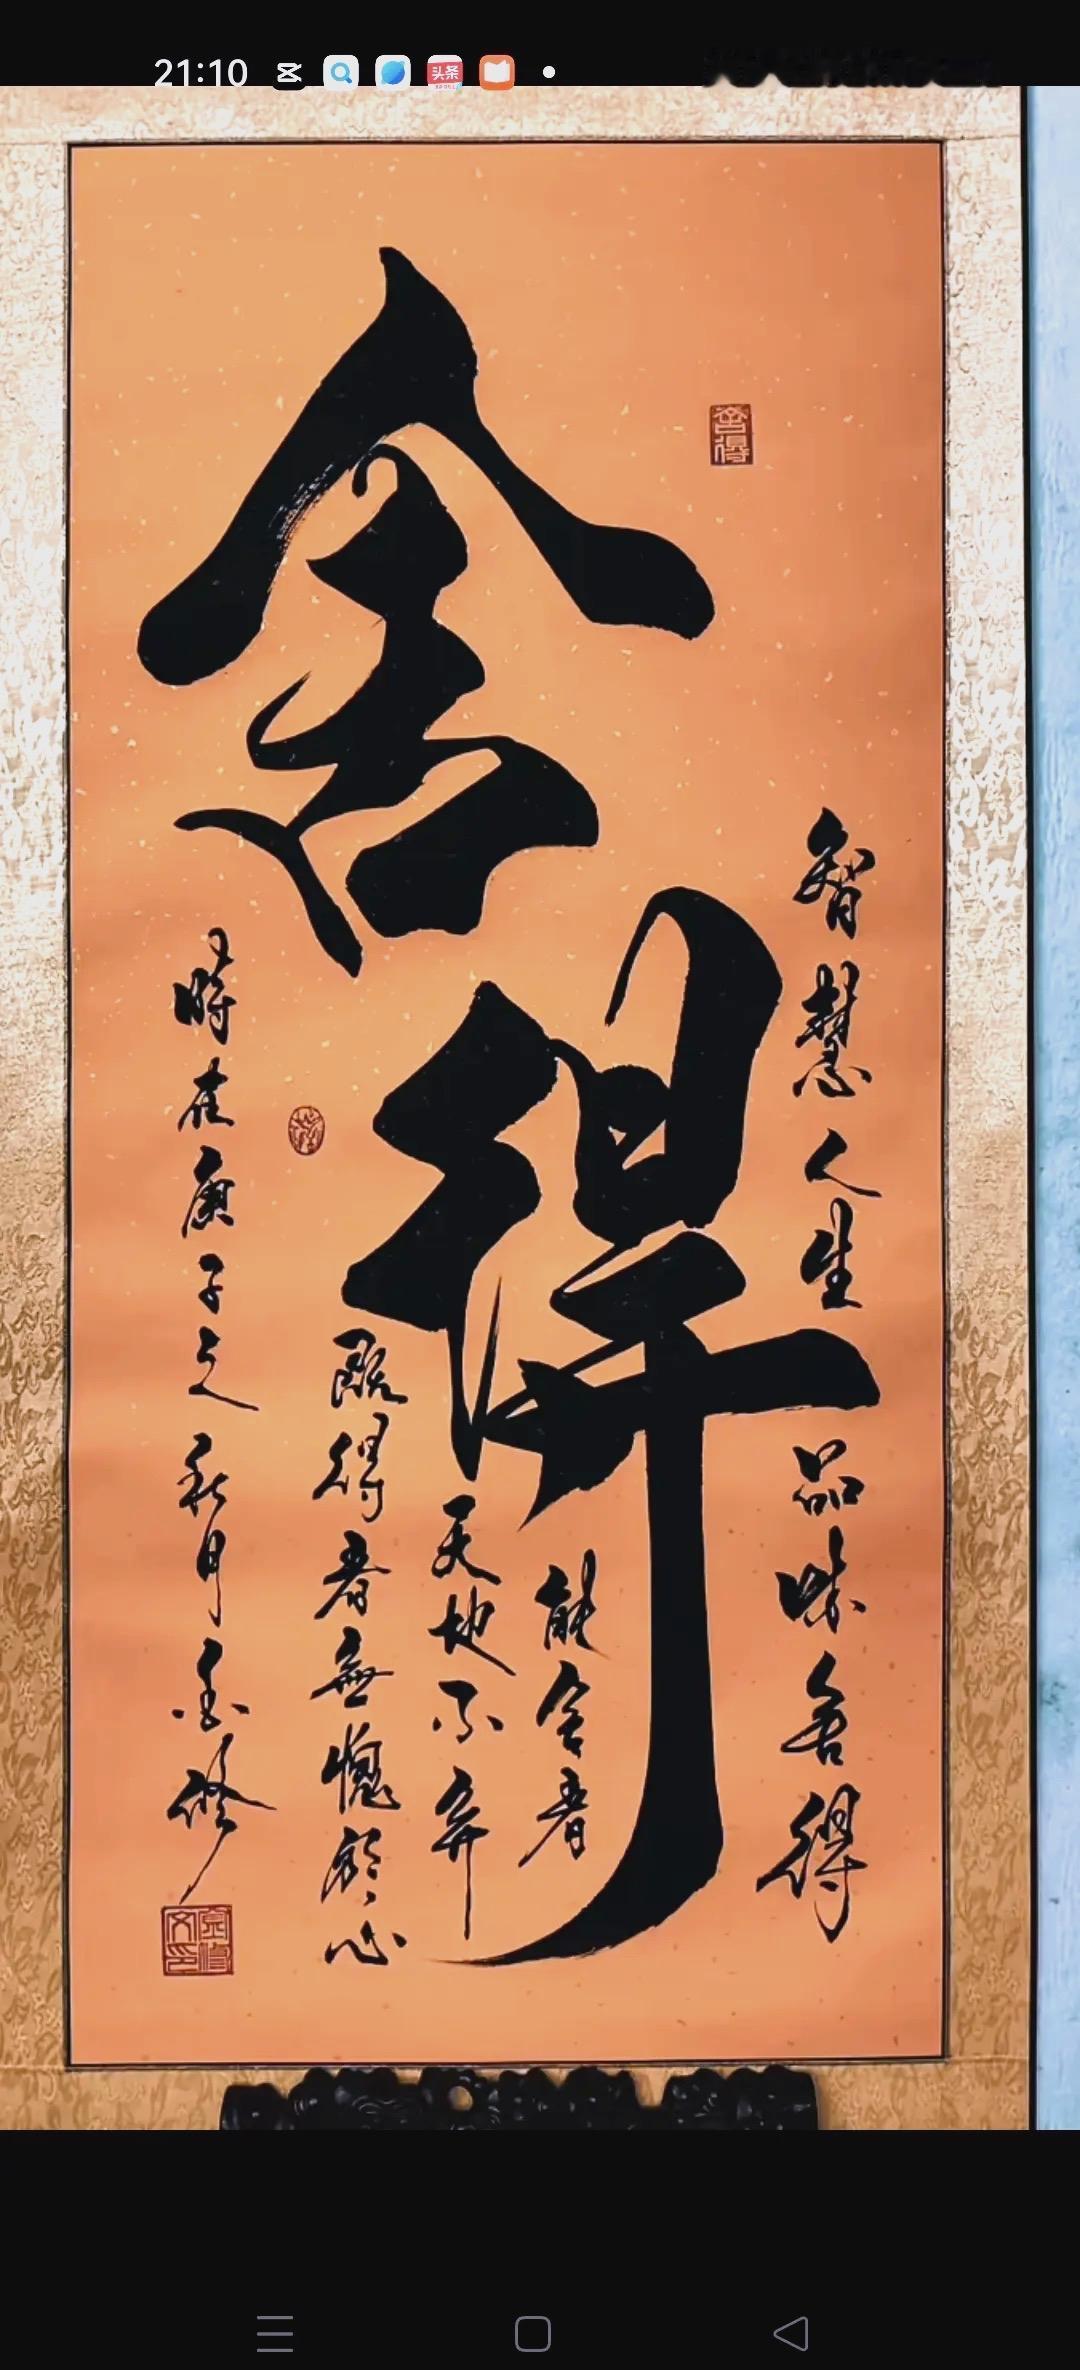 21:10
头条
舍得
舍得
智慧人生
品味舍得
能舍者
天地不弃
既得者無愧於心
時在庚子之秋月